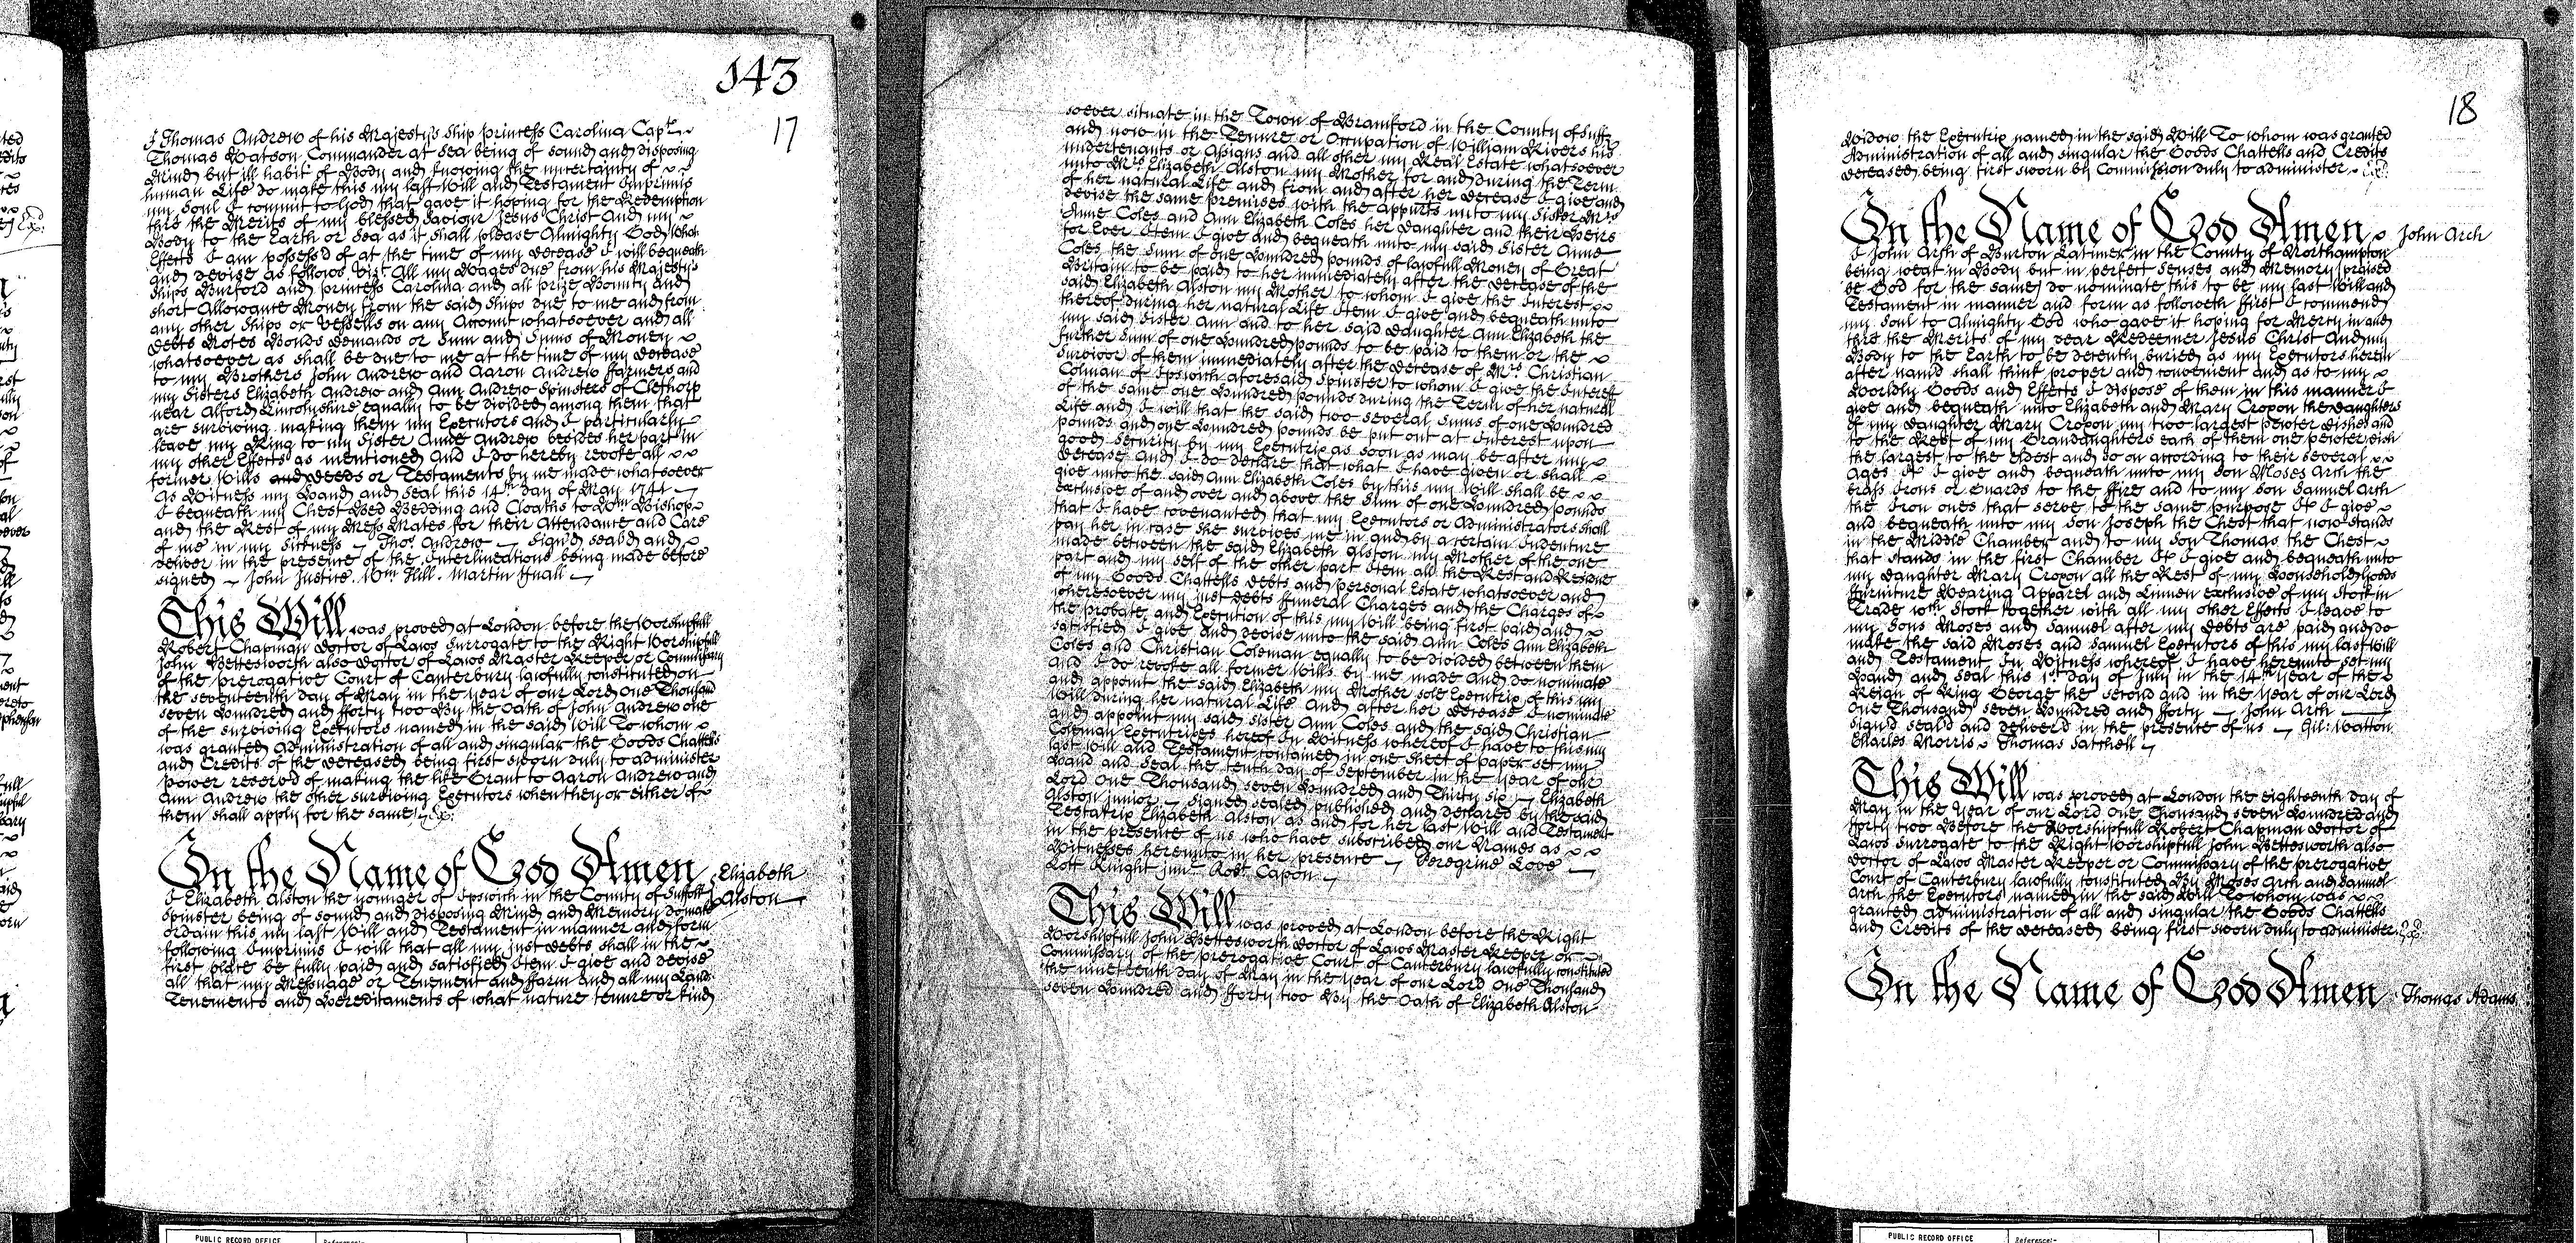 143
17
I Thomas Andrew of his Majestys Ship Princess Carolina Capt.
Thomas Watson Commander at Sea being of sound and disposing
Mind but ill habit of Body and knowing the uncertainty of
human Life do make this my last Will and Testament Imprimis
my Soul I commit to God that gave it hoping for the Redemption
thro the Merits of my blessed Saviour Jesus Christ And my
Body to the Earth or Sea as it shall please Almighty God
Effects I am possess'd of at the time of my decease I will bequeath
and devise as follows Vizt. All my Wages due from his Majestys
Ships Burford and Princess Carolina and all prize Bounty and
short Allowance Money from the said Ships due to me and from
any other Ships or Vessells on any Account whatsoever and all
Debts Notes Bonds demands or Sum and Sums of Money
whatsoever as shall be due to me at the time of my decease
to my Brothers John Andrew and Aaron Andrew ffarmers and
my Sisters Elizabeth Andrew and Ann Andrew Spinsters of Clethorp
near Alford Lincolnshire equally to be divided among them that
are surviving making them my Executors and I particularly
leave my Ring to my Sister Anne Andrew besides her part in
my other Effects as mentioned And I do hereby revoke all
former Wills and deeds or Testaments by me made whatsoever
As Witness my Hand and Seal this 14th. day of May 1741
I bequeath my Chest Bed Bedding and Cloaths to Wm. Bishop
and the Rest of my Mess Mates for their Attendance and Care
of me in my Sickness Tho. Andrew Sign'd seal'd and
deliver in the presence of the Interlineations being made before
signed John Justice. Wm Hill. Martin Huall
This Will was proved at London before the Worshipfull
Robert Chapman Doctor of Laws Surrogate to the Right Worshipfull
John Bettesworth also Doctor of Laws Master Keeper or Commissary
of the Prerogative Court of Canterbury lawfully constituted on
the seventeenth day of May in the Year of our Lord One Thousand
seven Hundred and fforty two By the Oath of John Andrew one
of the surviving Executors named in the said Will To whom
was granted Administration of all and singular the Goods Chattells
and Credits of the deceased being first sworn duly to administer
Power reserv'd of making the like Grant to Aaron Andrew and
Ann Andrew the other surviving Executors when they or either of
them shall apply for the same
In the Name of God Amen Elizabeth
Alston
I Elizabeth Alston the younger of Ipswich in the County of Suffolk
Spinster being of sound and disposing Mind and Memory do make
ordain this my last Will and Testament in manner and form
following Imprimis I will that all my just debts shall in the
first place be fully paid and satisfied Item I give and devise
all that my Messuage or Tenement and ffarm and all my Lands
Tenements and Hereditaments of what nature tenure or kind
soever situate in the Town of Bramford in the County of Suff
and now in the Tenure or Occupation of William Rivers his
undertenants or Assigns and all other my Real Estate whatsoever
unto Mrs. Elizabeth Alston my Mother for and during the Term
of her natural Life and from and after her decease I give and
devise the same premises with the appurts unto my Sister Mrs
Anne Coles and Ann Elizabeth Coles her Daughter and their Heirs
for Ever Item I give and bequeath unto my said Sister Anne
Coles the Sum of one Hundred pounds of lawfull Money of Great
Britain to be paid to her immediately after the decease of the
said Elizabeth Alston my Mother to whom I give the Interest
thereof during her natural Life Item I give and bequeath unto
my said Sister Ann and to her said Daughter Ann Elizabeth the
further Sum of one Hundred pounds to be paid to them or the
Survivor of them immediately after the decease of Mrs. Christian
Colman of Ipswich aforesaid Spinster to whom I give the Interest
of the same one Hundred pounds during the Term of her natural
Life and I will that the said two several Sums of one Hundred
pounds and one Hundred pounds be put out at Interest upon
good Security by my Executrix as soon as may be after my
decease And I do declare that what I have given or shall
give unto the said Ann Elizabeth Coles by this my Will shall be
exclusive of and over and above the Sum of one Hundred pounds
that I have covenanted that my Executors or Administrators shall
pay her in case she survives me in and by a certain Indenture
made between the said Elizabeth Alston my Mother of the one
part and my self of the other part Item all the Rest and Residue
of my Goods Chattells debts and personal Estate whatsoever and
wheresoever my just debts ffuneral Charges and the Charges of
the probate and Execution of this my Will being first paid and
satisfied I give and devise unto the said Ann Coles Ann Elizabeth
Coles and Christian Coleman equally to be divided between them
And I do revoke all former Wills by me made And do nominate
and appoint the said Elizabeth my Mother sole Executrix of this my
Will during her natural Life And after her decease I nominate
and appoint my said Sister Ann Coles and the said Christian
Coleman Executrixes hereof In Witness whereof I have to this my
last Will and Testament contained in one sheet of paper set my
Hand and Seal the tenth day of September in the Year of our
Lord One Thousand seven Hundred and Thirty six Elizabeth
Alston junior Signed sealed published and declared by the said
Testatrix Elizabeth Alston as and for her last Will and Testament
in the presence of us who have subscribed our Names as
Witnesses hereunto in her presence Peregrine Love
Lott Knight junr. Robt. Capon
This Will was proved at London before the Right
Worshipfull John Bettesworth Doctor of Laws Master Keeper or
Commissary of the Prerogative Court of Canterbury lawfully constituted
the nineteenth day of May in the Year of our Lord One Thousand
seven Hundred and fforty two By the Oath of Elizabeth Alston
18
Widow the Executrix named in the said Will To whom was granted
Administration of all and singular the Goods Chattells and Credits
deceased being first sworn by Commission duly to administer
In the Name of God Amen John Arch
I John Arch of Burton Latimer in the County of Northampton
being weak in Body but in perfect Senses and Memory praised
be God for the same do nominate this to be my last Will and
Testament in manner and form as followeth ffirst I commend
my Soul to Almighty God who gave it hoping for Mercy in and
thro the Merits of my dear Redeemer Jesus Christ And my
Body to the Earth to be decently buried as my Executors herein
after nam'd shall think proper and convenient and as to my
Worldly Goods and Effects I dispose of them in this manner I
give and bequeath unto Elizabeth and Mary Cropon the daughters
of my daughter Mary Cropon my two largest pewter dishes and
to the Rest of my Granddaughters each of them one pewter dish
the largest to the eldest and so on according to their several
Ages It I give and bequeath unto my Son Moses Arch the
brass Irons or Guards to the ffire and to my Son Samuel Arch
the Iron ones that serve to the same purpose It I give
and bequeath unto my Son Joseph the Chest that now stands
in the Middle Chamber and to my Son Thomas the Chest
that stands in the first Chamber It I give and bequeath unto
my daughter Mary Cropon all the Rest of my Household Goods
ffurniture Wearing Apparel and Linnen exclusive of my Stock in
Trade wch. Stock together with all my other Effects I leave to
my Sons Moses and Samuel after my debts are paid and do
make the said Moses and Samuel Executors of this my last Will
and Testament In Witness whereof I have hereunto set my
Hand and Seal this 1st. day of July in the 14th Year of the
Reign of King George the second and in the Year of our Lord
One Thousand seven Hundred and forty John Arch
Sign'd seal'd and deliver'd in the presence of us Gil: Watton
Charles Morris Thomas Satchell
This Will was proved at London the eighteenth day of
May in the Year of our Lord One Thousand seven Hundred and
fforty two Before the Worshipfull Robert Chapman Doctor of
Laws Surrogate to the Right Worshipfull John Bettesworth also
Doctor of Laws Master Keeper or Commissary of the Prerogative
Court of Canterbury lawfully constituted By Moses Arch and Samuel
Arch the Executors named in the said Will To whom was
granted Administration of all and singular the Goods Chattells
and Credits of the deceased being first sworn duly to administer
In the Name of God Amen Thomas Adams
PUBLIC RECORD OFFICE Reference:-
PUBLIC RECORD OFFICE Reference:-